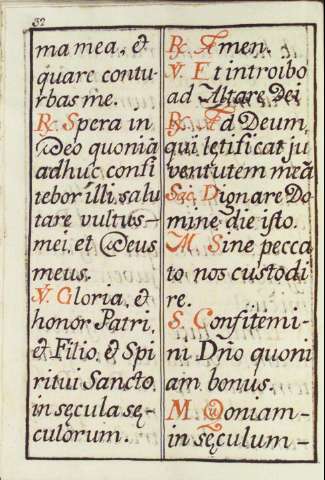 32
ma mea, &
quare contu
rbas me.
R. Spera in
Deo quoniã
adhuc confi
tebor illi, salu
tare vultus-
mei, et Deus
meus.
V. Gloria, &
honor Patri,
& Filio, & Spi
ritui Sancto,
in sęcula sę-
culorum.
R. Amen.
V. Et introibo
ad Altare Dei
R. Ad Deum,
qui lętificat ju
ventutem meã
Sac. Dignare Do
mine die isto.
M. Sine pecca
to nos custodi
re.
S. Confitemi-
ni Dño quoni
am bonus.
M. Quoniam-
in sęculum-